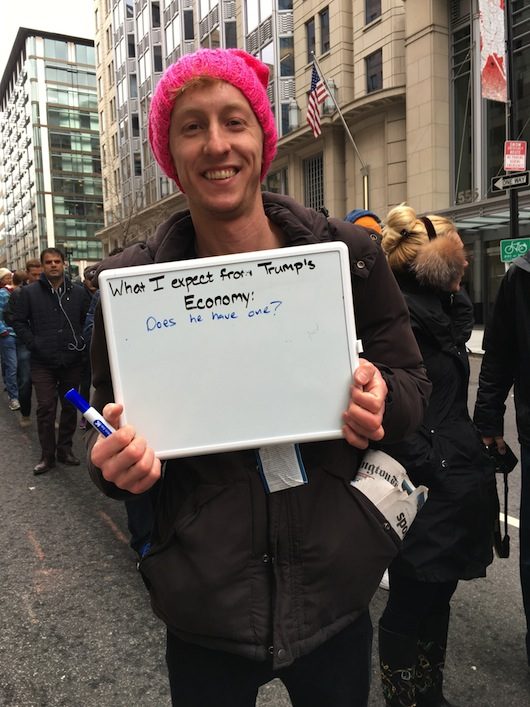 What I expect from Trump's
Economy:
Does he have one?
ONE WAY